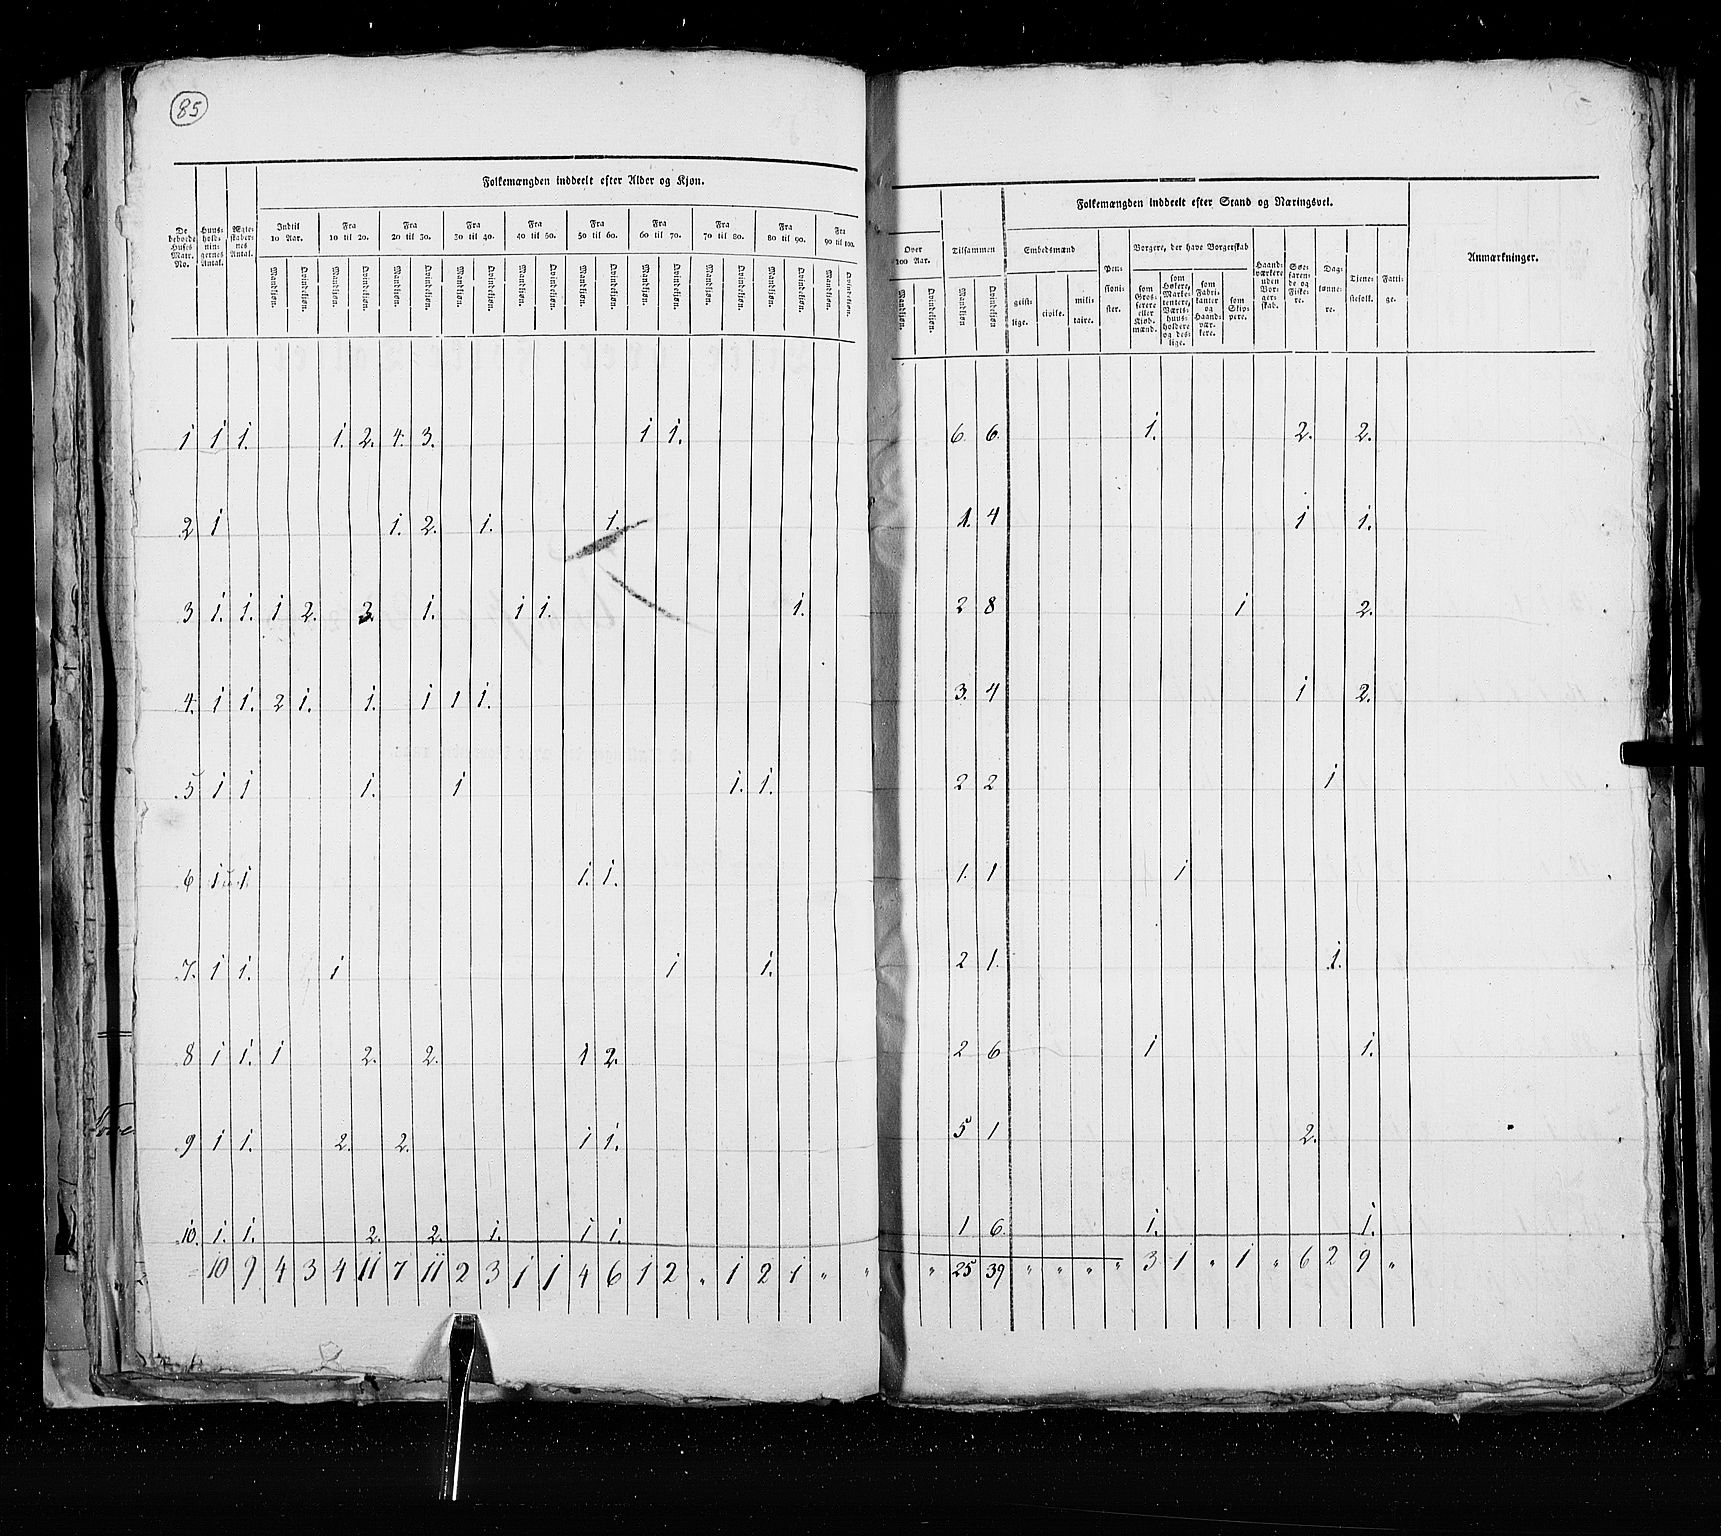 85
Folkemængden inddeelt efter Alder og Kjøn.
De beboede Huses Matr. No. Huus- holdnin- gernes Antal. Ægte- skaber- nes Antal. Indtil 10 Aar. Fra 10 til 20. Fra 20 til 30. Fra 30 til 40. Fra 40 til 50. Fra 50 til 60. Fra 60 til 70. Fra 70 til 80. Fra 80 til 90. Fra 90 til 100.
Mandkjøn. Qvindekjøn. Mandkjøn. Qvindekjøn. Mandkjøn. Qvindekjøn. Mandkjøn. Qvindekjøn. Mandkjøn. Qvindekjøn. Mandkjøn. Qvindekjøn. Mandkjøn. Qvindekjøn. Mandkjøn. Qvindekjøn. Mandkjøn. Qvindekjøn. Mandkjøn. Qvindekjøn.
1 1 1. 1. 2. 4. 3. 1 1.
2 1 1. 2. 1. 1.
3 1. 1. 1 2. 3. 1. 1 1. 1.
4. 1 1. 2 1. 1. 1 1 1.
5 1 1 1. 1 1. 1.
6 1 1 1. 1.
7. 1 1. 1 1 1.
8 1 1. 1 2. 2. 1 2.
9 1 1. 2. 2. 1 1.
10. 1. 1. 2. 2. 1. 1 1.
10 9 4 3 4 11 7 11 2 3 1 1 4 6 1 2 " 1 2 1 " "
Folkemængden inddeelt efter Stand og Næringsvei.
Over 100 Aar. Tilsammen Embedsmænd Pensionister. Borgere, der have Borgerskab Haandværkere uden Borgerskab. Søefarende og Fiskere. Dagslønnere. Tjenestefolk. Fattige. Anmærkninger.
Mandkjøn. Qvindekjøn. Mandkjøn Qvindekjøn geistlige. civile. militaire. som Grosserere eller Kiøbmænd. som Høkere, Marketentere, Værtshuusholdere og deslige. som Fabrikanter og Haandværkere. som Skippere.
6. 6. 1. 2. 2.
1. 4 1 1.
2 8 1 2.
3. 4 1 2.
2 2 1
1. 1 1
2 1. 1.
2 6 1 1.
5 1 2.
1 6. 1. 1.
" 25 39 " " " " 3 1 " 1 " 6 2 9 "